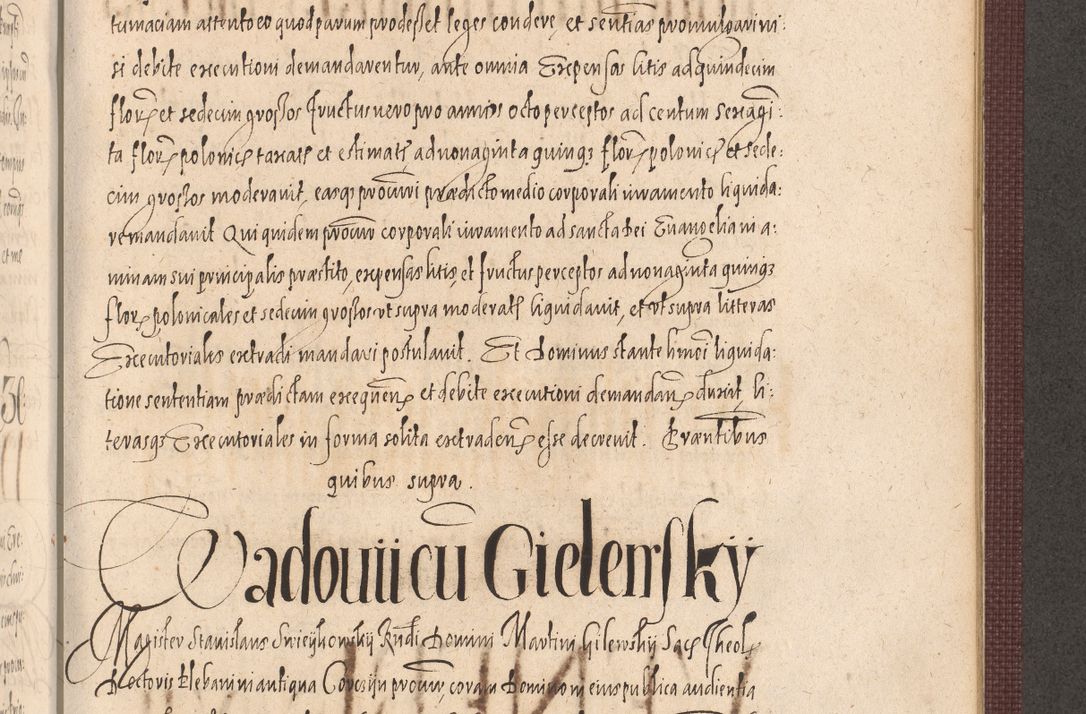 tumaciam attento eo quod parum prodesset leges condere, et sentias promulgari ni:
si debite executioni demandarentur, ante omnia Expensas litis ad quindecim
floren et sedecim grossos fructus vero pro annis octo perceptos ad centum sexagi:
ta floren polonic taxat et estimat ad nonaginta quinq floren polonic et sede:
cim grossos moderavit, easq procuri praedicto medio corporali iuramento liquida:
re mandavit Qui quidem procur corporali iuramento ad sancta Dei Evangelia in a:
nimam sui principalis praestito, expensas litis, et fructus perceptos ad nonaginta quinq
floren polonicales et sedecim grossos ut supra moderat liquidavit, et ut supra litteras
Executoriales extradi mandari postulavit. Et Dominus stante hmoi liquida:
tione sententiam praedictam exequen et debite executioni demandan duxit, li:
terasq Executoriales in forma solita extraden esse decrevit. Praentibus
quibus supra.
Vadovii cu Gielewskÿ
Magister Stanislaus Swieykowskij Rndi Domini Martini Gilewskij Sac Theol
Doctoris Plebani in antiqua procur, coram Domino in eius publica audientia